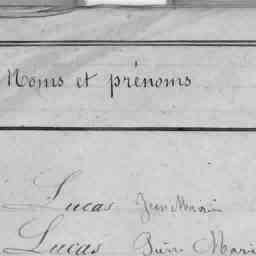 Noms et prénoms
Lucas Jean Marie
Lucas Pierre Marie